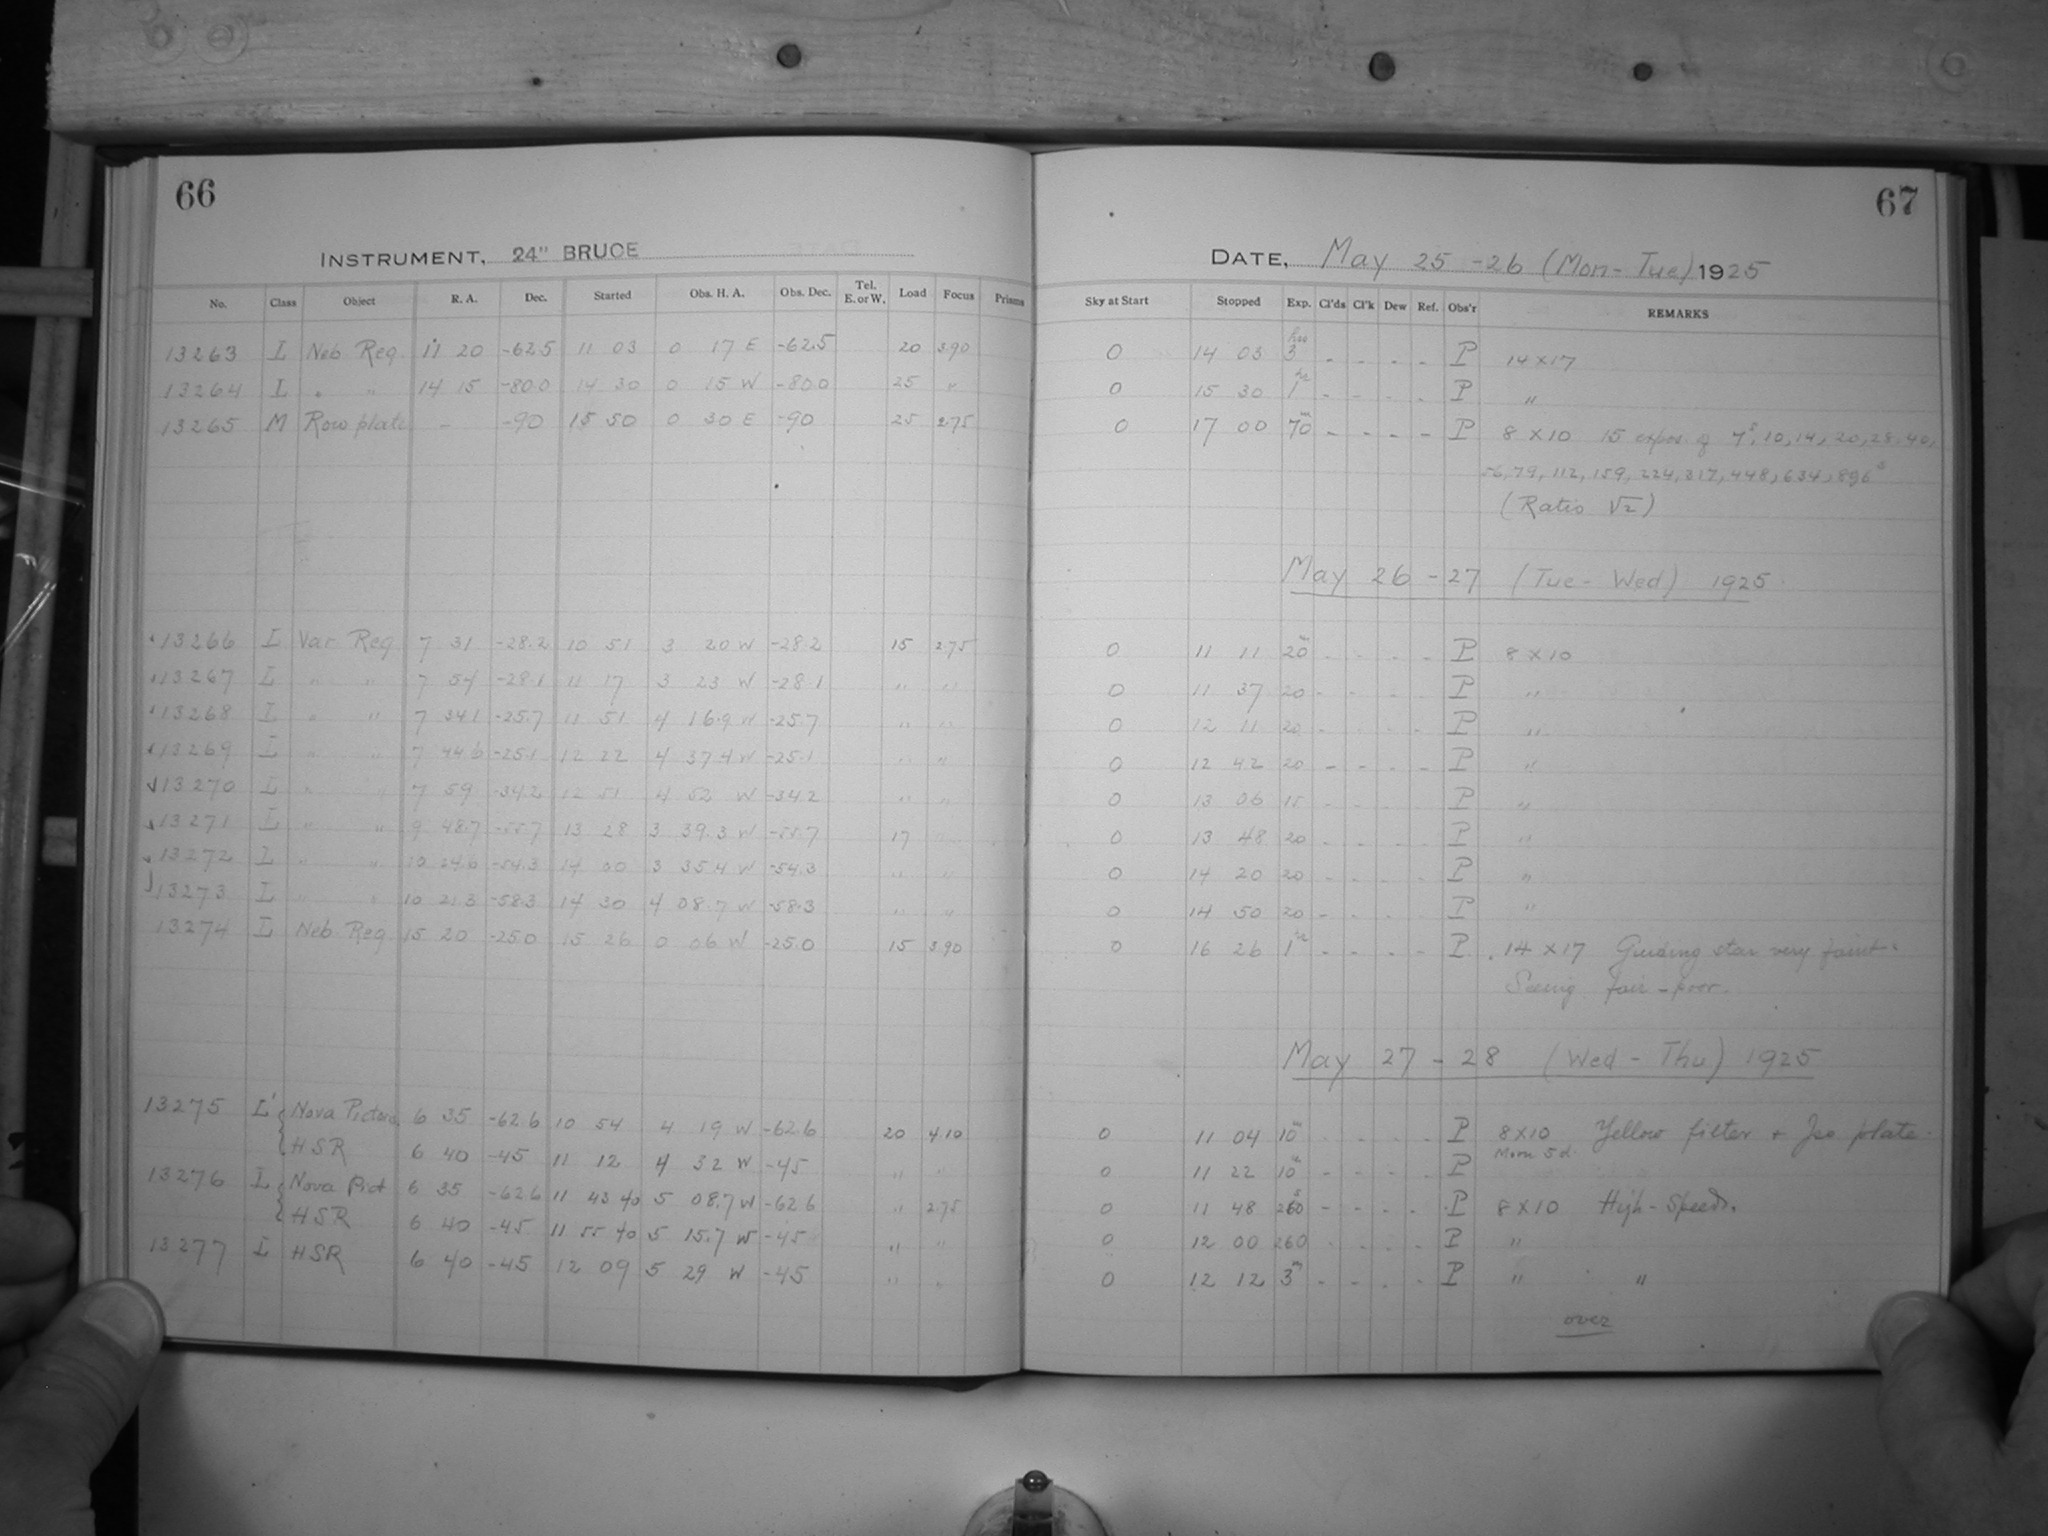 66
INSTRUMENT, 24" BRUCE
No. Class Object R. A. Dec. Started Obs. H. A. Obs. Dec. Tel. E. or W. Load Focus Prisms
13263 L Neb. Reg. 11 20 -62.5 11 03 0 17 E -62.5 20 3.90
13264 L " " 14 15 -80.0 14 30 0 15 W -80.0 25 "
13265 M Row plate - -90 15 50 0 30 E -90 25 2.75
13266 L Var Reg 7 31 -28.2 10 51 3 20 W -28.2 15 2.75
13267 L " " 7 54 -28.1 11 17 3 23 W -28.1 " "
13268 L " " 7 34.1 -25.7 11 51 4 16.9 W -25.7 " "
13269 L " " 7 44.6 -25.1 12 22 4 37.4 W -25.1 " "
13270 L " " 7 59 -34.2 12 51 4 52 W -34.2 " "
13271 L " " 9 48.7 -55.7 13 28 3 39.3 W -55.7 17 "
13272 L " " 10 24.6 -54.3 14 00 3 35.4 W -54.3 " "
13273 L " " 10 21.3 -58.3 14 30 4 08.7 W -58.3 " "
13274 L Neb. Reg 15 20 -25.0 15 26 0 06 W -25.0 15 3.90
13275 L' Nova Pictoris 6 35 -62.6 10 54 4 19 W -62.6 20 4.10
HSR 6 40 -45 11 12 4 32 W -45 " "
13276 L Nova Pict 6 35 -62.6 11 43 40 5 08.7 W -62.6 " 2.75
HSR 6 40 -45 11 55 40 5 15.7 W -45 " "
13277 L HSR 6 40 -45 12 09 5 29 W -45 " "
67
DATE, May 25 -26 (Mon - Tue) 1925
Sky at Start Stopped Exp. Cl'ds Cl'k Dew Ref. Obs'r REMARKS
0 14 03 3 hrs - - - - P 14 x 17
0 15 30 1 hr - - - - P "
0 17 00 70 m - - - - P 8 x 10 15 expos. of 7s, 10, 14, 20, 28, 40,
56, 79, 112, 159, 224, 317, 448, 634, 896 s
(Ratio √2)
May 26 - 27 (Tue - Wed) 1925
0 11 11 20 m - - - - P 8 x 10
0 11 37 20 - - - - P "
0 12 11 20 - - - - P "
0 12 42 20 - - - - P "
0 13 06 15 - - - - P "
0 13 48 20 - - - - P "
0 14 20 20 - - - - P "
0 14 50 20 - - - - P "
0 16 26 1 hr - - - - P 14 x 17 Guiding star very faint.
Seeing fair - poor.
May 27 - 28 (Wed - Thu) 1925
0 11 04 10 m - - - - P 8 x 10 Yellow filter + Iso plate.
Moon 5 d.
0 11 22 10 m - - - - P
0 11 48 260 s - - - - P 8 x 10 High-Speeds.
0 12 00 260 - - - - P "
0 12 12 3 m - - - - P " "
over